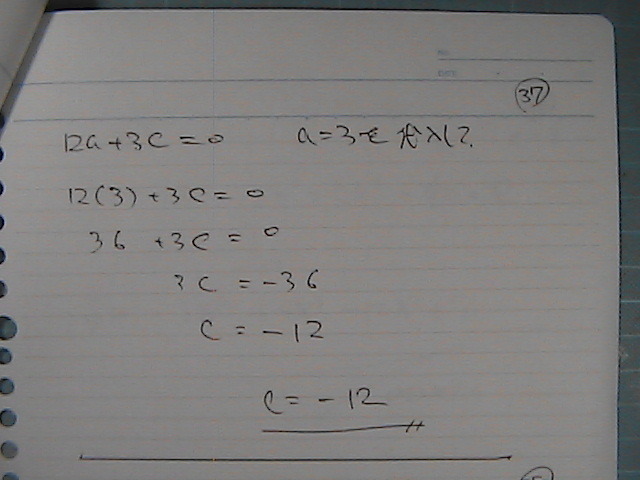 NO.
DATE
37
12a+3c=0 a=3を代入して
12(3)+3c=0
36 +3c=0
3c=-36
c=-12
c=-12